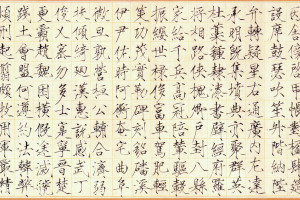 設席鼓瑟吹笙升階納陛
弁轉疑星右通廣內左達
承明既集墳典亦聚群英
杜稾鍾隸漆書壁經府羅
將相路俠槐卿戶封八縣
家給千兵高冠陪輦驅轂
振纓世祿侈富車駕肥輕
策功茂實勒碑刻銘磻溪
伊尹佐時阿衡奄宅曲阜
微旦孰營桓公輔合濟弱
扶傾綺迴漢惠說感武丁
俊乂密勿多士寔寧晉楚
更霸趙魏困橫假途滅虢
踐土會盟何遵約法韓弊
煩刑起翦頗牧用軍最精